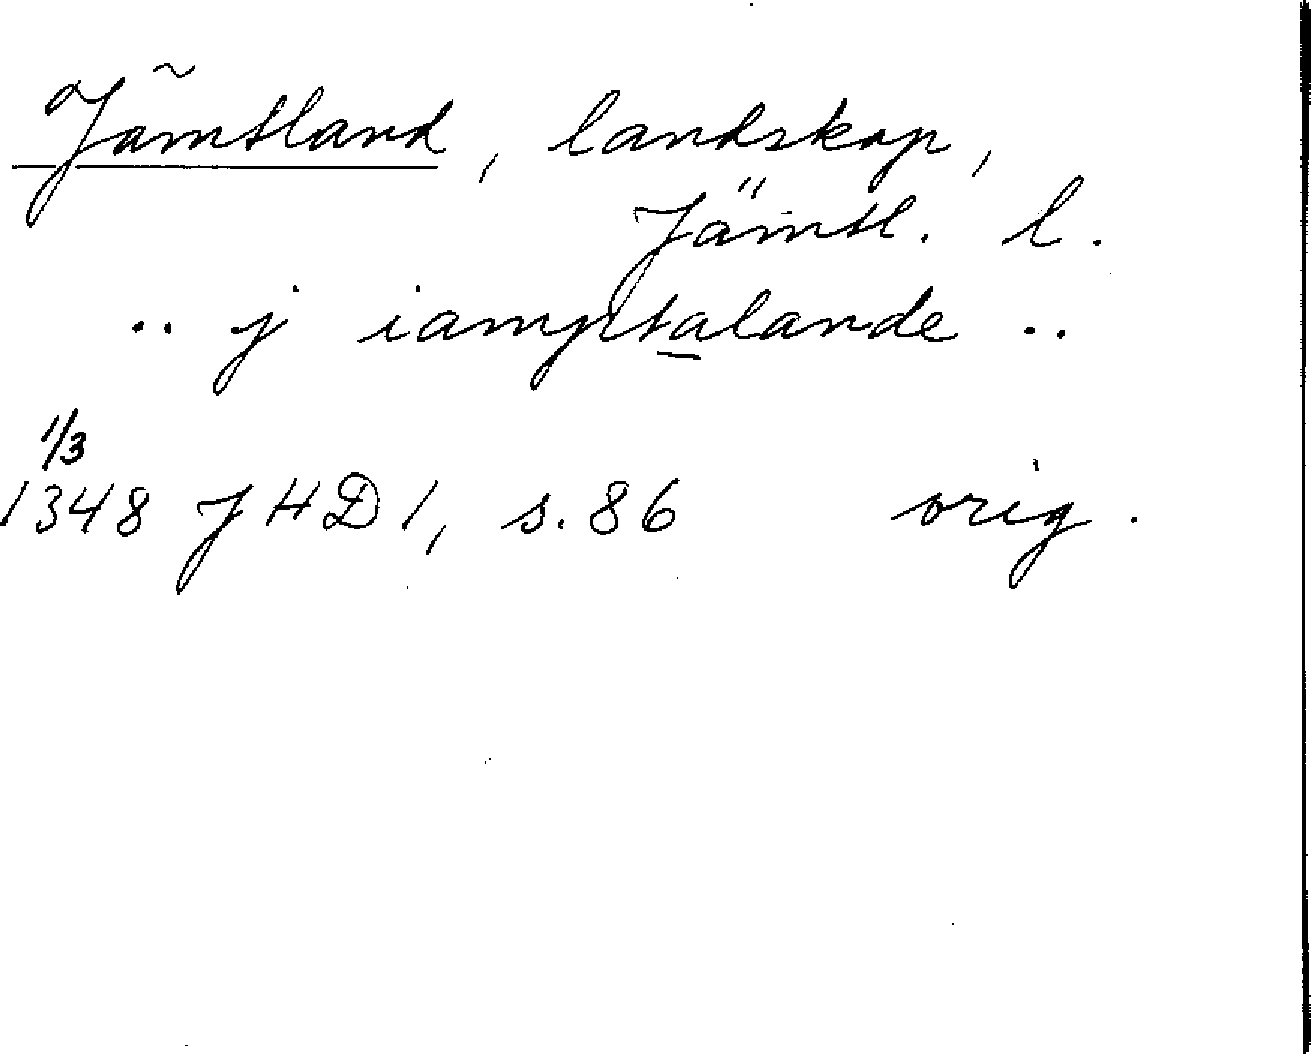 Jämtland, landskap,
Jämtl. l.
.. j iamptalande ..
1/3
1348 JHD 1, s. 86 orig.